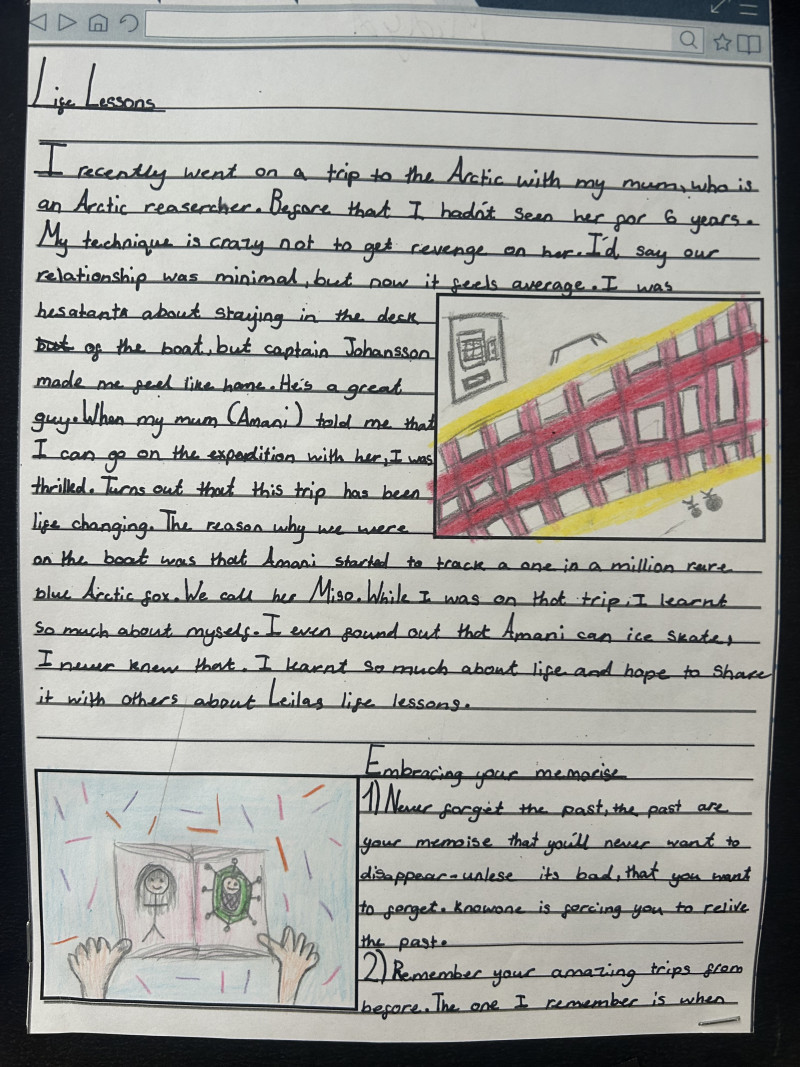 Life Lessons
I recently went on a trip to the Arctic with my mum, who is
an Arctic reasercher. Before that I hadn't seen her for 6 years.
My technique is crazy not to get revenge on her. I'd say our
relationship was minimal, but now it feels average. I was
hesatants about staying in the deck
of the boat, but captain Johansson
made me feel like home. He's a great
guy. When my mum (Amani) told me that
I can go on the expordition with her, I was
thrilled. Turns out that this trip has been
life changing. The reason why we were
on the boat was that Amani started to track a one in a million rare
blue Arctic fox. We call her Miso. While I was on that trip, I learnt
so much about myself. I even found out that Amani can ice skate,
I never knew that. I learnt so much about life and hope to share
it with others about Leilas life lessons.
Embracing your memorise
1) Never forget the past, the past are
your memoise that you'll never want to
disappear-unlese its bad, that you want
to forget. Knowone is forcing you to relive
the past.
2) Remember your amazing trips from
before. The one I remember is when